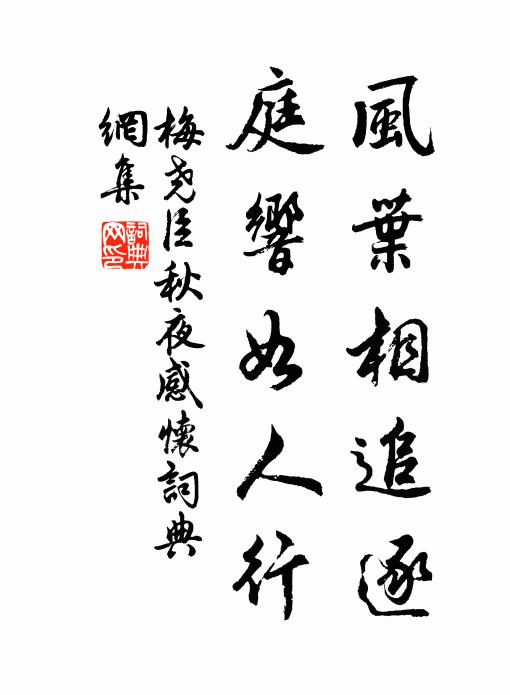 風葉相追逐
庭響如人行
梅堯臣秋夜感懷詞典
網集
詞典網印